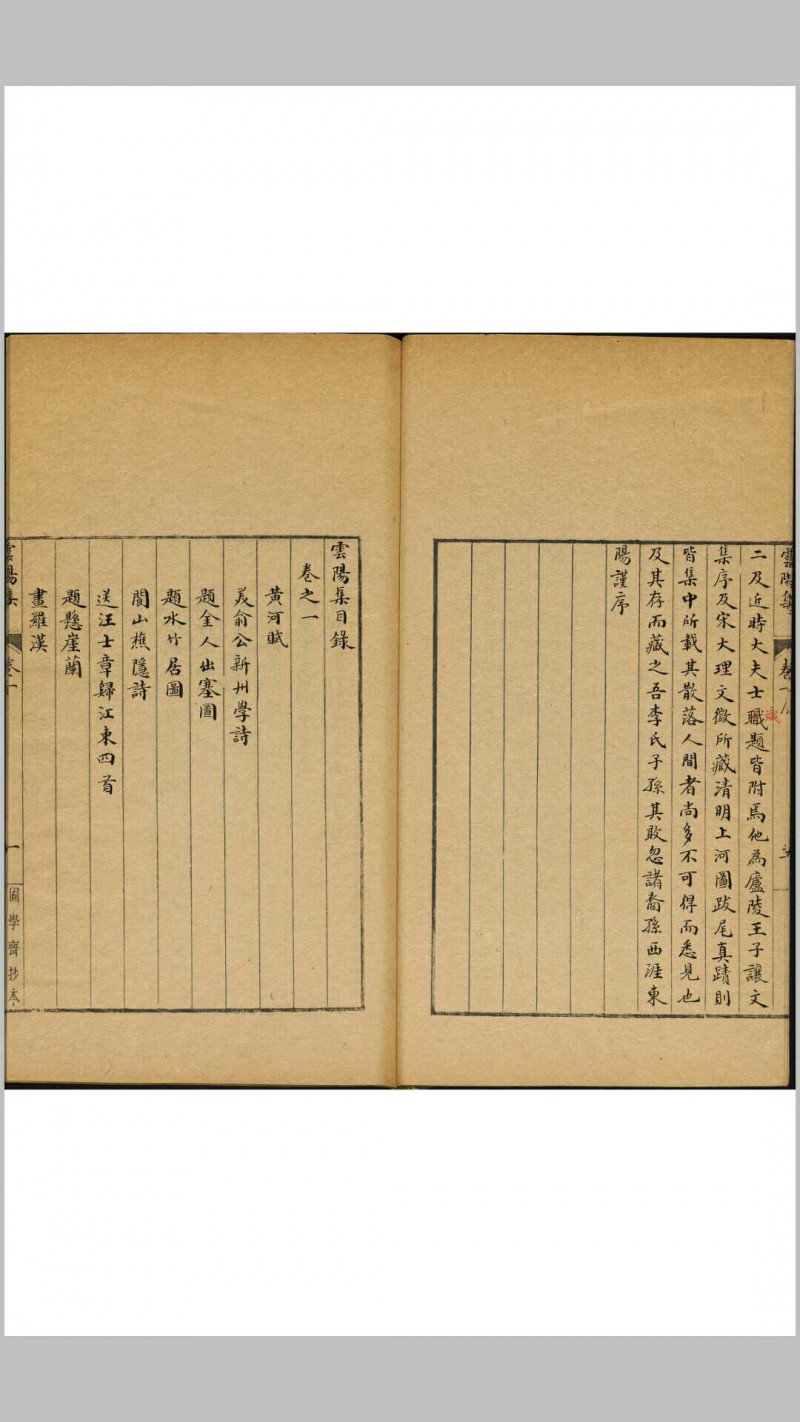 二及近時大夫士職題皆附焉他為廬陵王子讓文
識
集序及宋大理文徵所藏清明上河圖跋尾真蹟則
皆集中所載其散落人間者尚多不可得而悉見也
及其存而藏之吾李氏子孫其敢忽諸裔孫西涯東
陽謹序
雲陽集目錄
卷之一
黄河賦
美俞公新州學詩
題金人出塞圖
題水竹居圖
閤山樵隱詩
送汪士章歸江東四首
題懸崖蘭
畫羅漢
雲陽集 卷一 一
圖學齋抄本